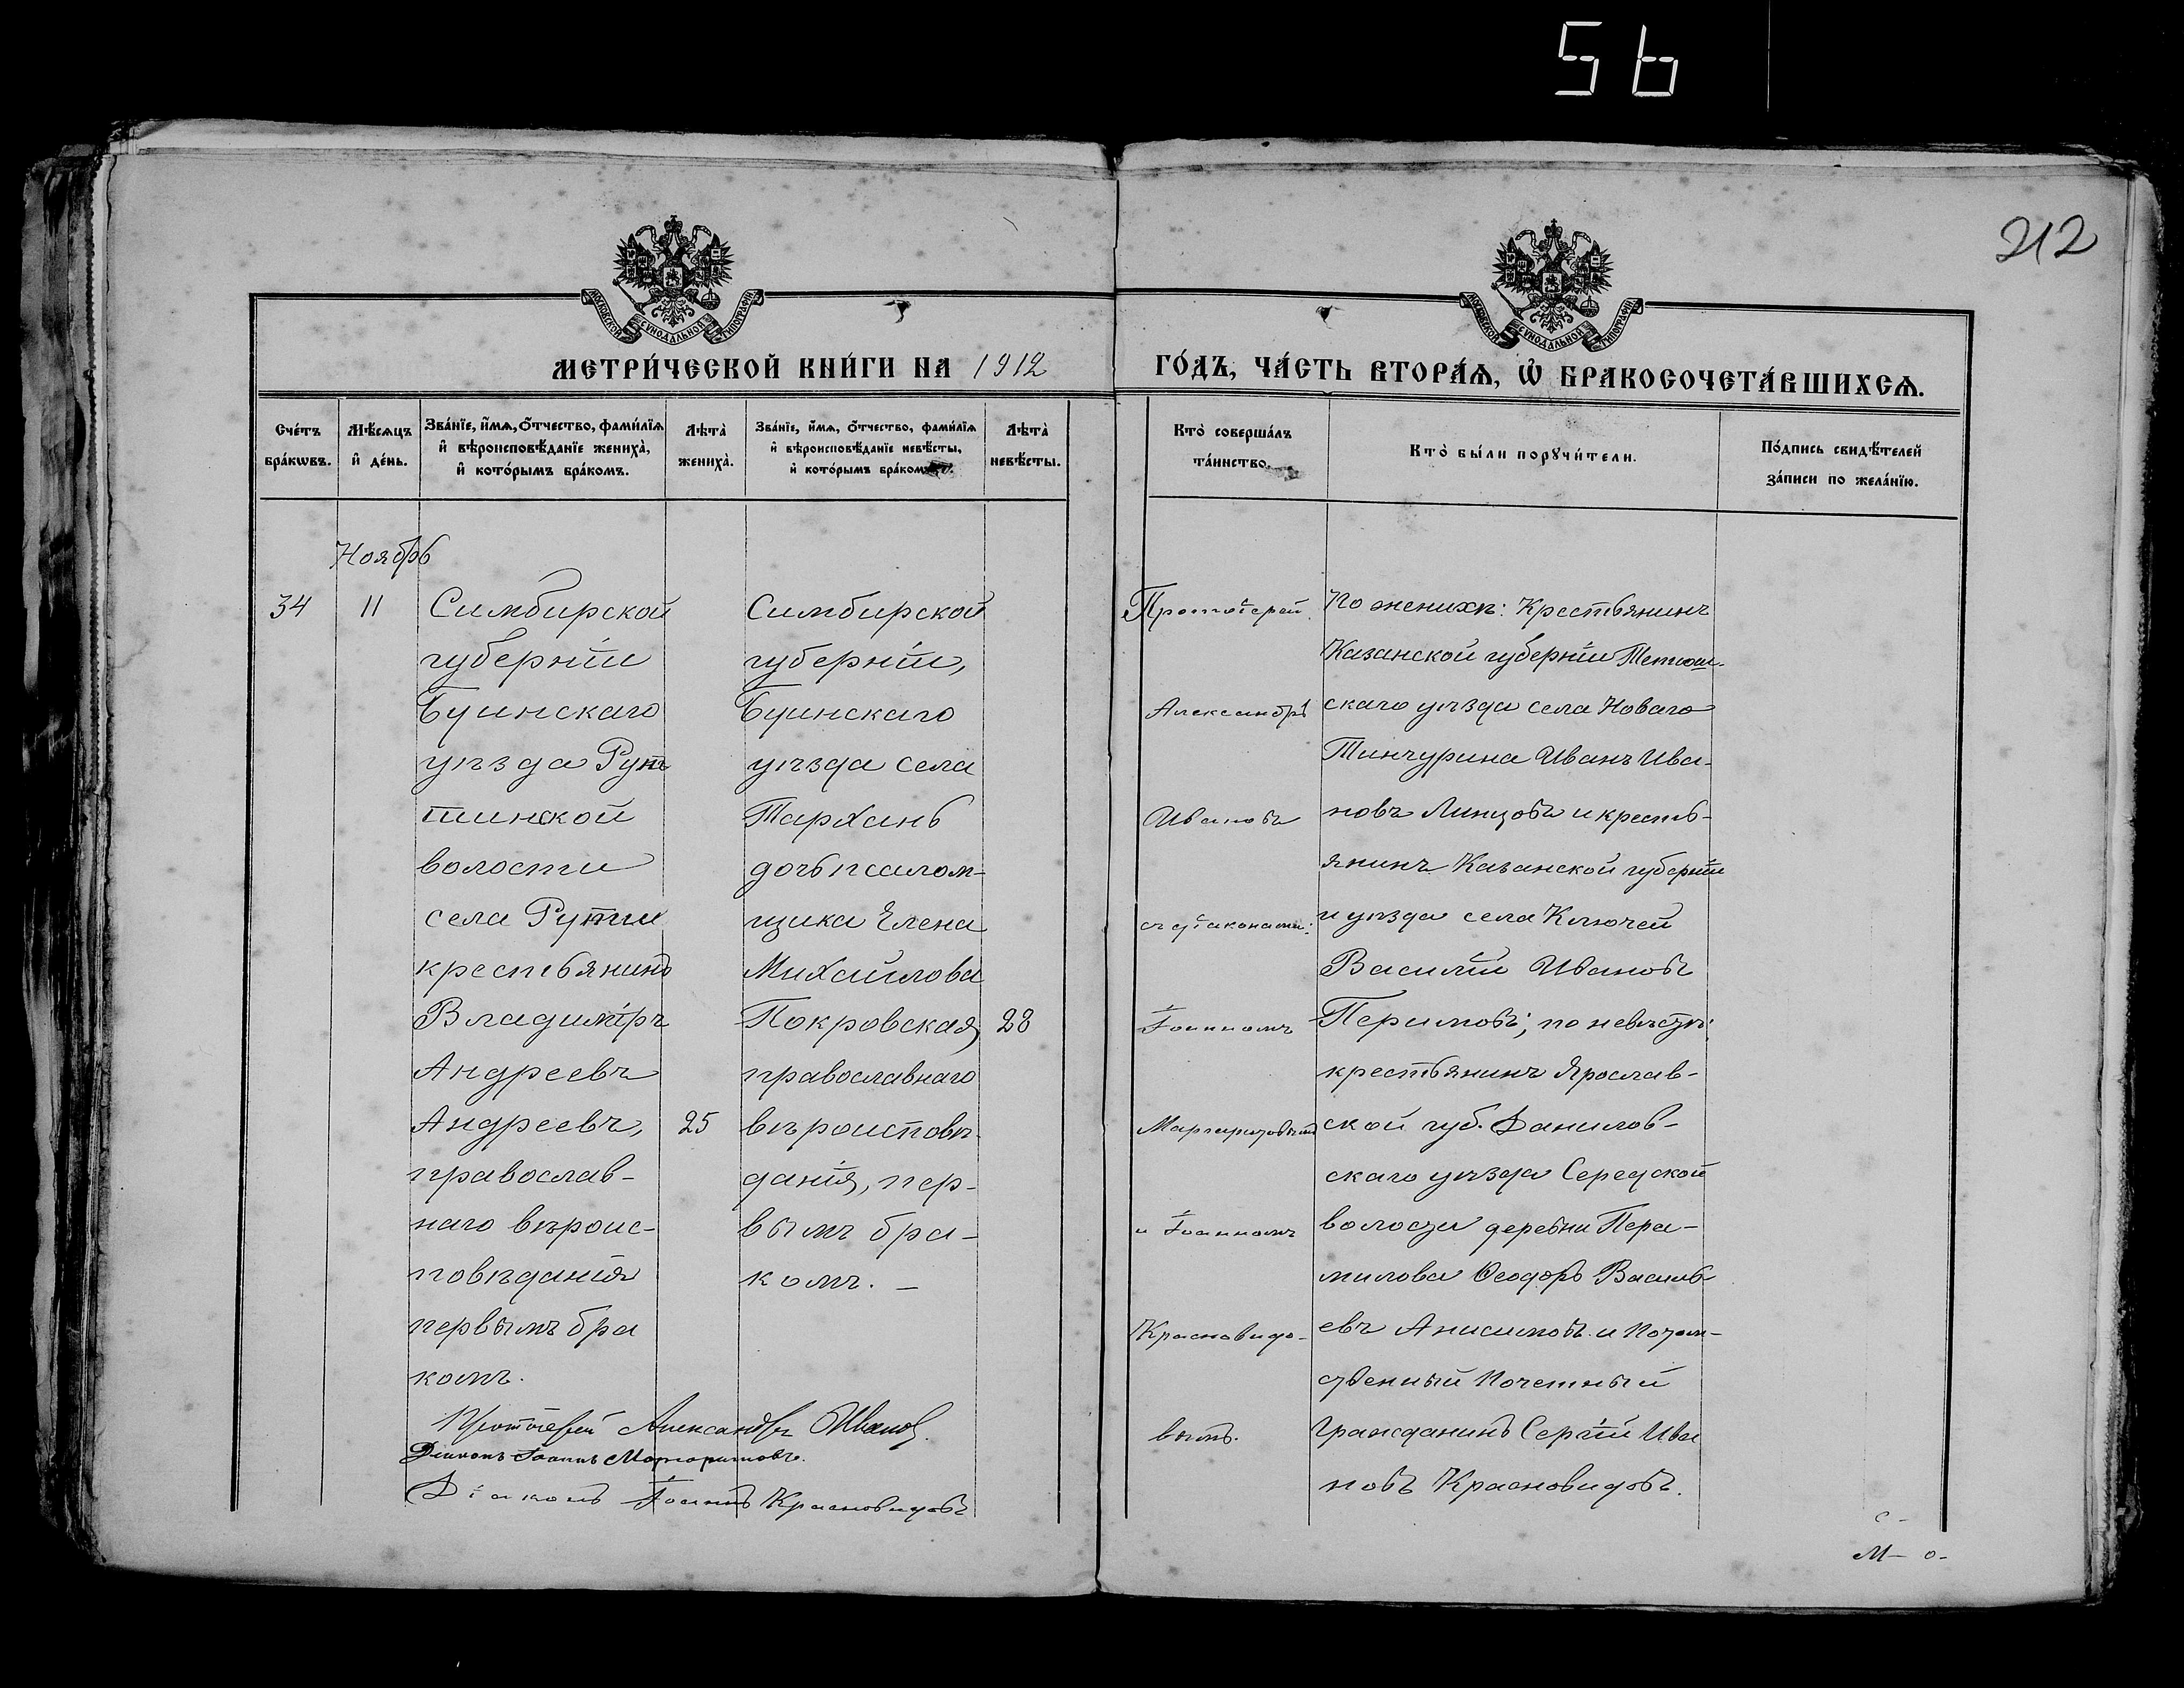 56
212
МОСКОВСКОЙ СѴНОДАЛЬНОЙ ТИПОГРАФІИ
МОСКОВСКОЙ СѴНОДАЛЬНОЙ ТИПОГРАФІИ
МЕТРИ́ЧЕСКОЙ КНИ́ГИ НА 1912
ГО́ДЪ, ЧА́СТЬ ВТОРА́Ѧ, Ѡ҆ БРАКОСОЧЕТА́ВШИХСѦ.
Сче́тъ
бра́кѡвъ.
Мѣ́сѧцъ
и҆ де́нь.
Зва́нїе, и҆́мѧ, о҆́тчество, фами́лїѧ
и҆ вѣроисповѣ́данїе жениха̀,
и҆ кото́рымъ бра́комъ.
Лѣта̀
жениха̀.
Зва́нїе, и҆́мѧ, о҆́тчество, фами́лїѧ
и҆ вѣроисповѣ́данїе невѣ́сты,
и҆ кото́рымъ бра́комъ.
Лѣта̀
невѣ́сты.
Кто̀ соверша́лъ
та́инство.
Кто̀ бы́ли порꙋчи́тели.
По́дпись свидѣ́телей
за́писи по жела́нїю.
Ноябрь
34
11
Симбирской
губерніи
Буинскаго
уѣзда Рун
гинской
волости
села Рунги
крестьянинъ
Владиміръ
Андреевъ
Андреевъ,
православ-
наго вѣроис-
повѣданія
первымъ бра
комъ.
25
Симбирской
губерніи,
Буинскаго
уѣзда села
Тарханъ
дочь псалом-
щика Елена
Михайлова
Покровская,
православнаго
вѣроисповѣ-
данія, пер-
вымъ бра-
комъ. -
28
Протоіерей
Александръ
Ивановъ
съ діаконами:
Іоанномъ
Маргаритовымъ
и Іоанномъ
Красновидо-
вымъ.
По женихѣ: Крестьянинъ
Казанской губерніи Тетюш-
скаго уѣзда села Новаго
Тинчурина Иванъ Ива-
новъ Линцовъ и кресть-
янинъ Казанской губерніи
и уѣзда села Ключей
Василій Ивановъ
Перимовъ; по невѣстѣ:
крестьянинъ Ярослав-
ской губ. Данилов-
скаго уѣзда Середской
волости деревни Пере-
милова Ѳеодоръ Василь-
евъ Анисимовъ и Потом-
ственный Почетный
Гражданинъ Сергій Ива
новъ Красновидовъ.
Протоіерей Александръ Ивановъ.
Діаконъ Іоаннъ Маргаритовъ.
Діаконъ Іоаннъ Красновидовъ
с -
М - о -